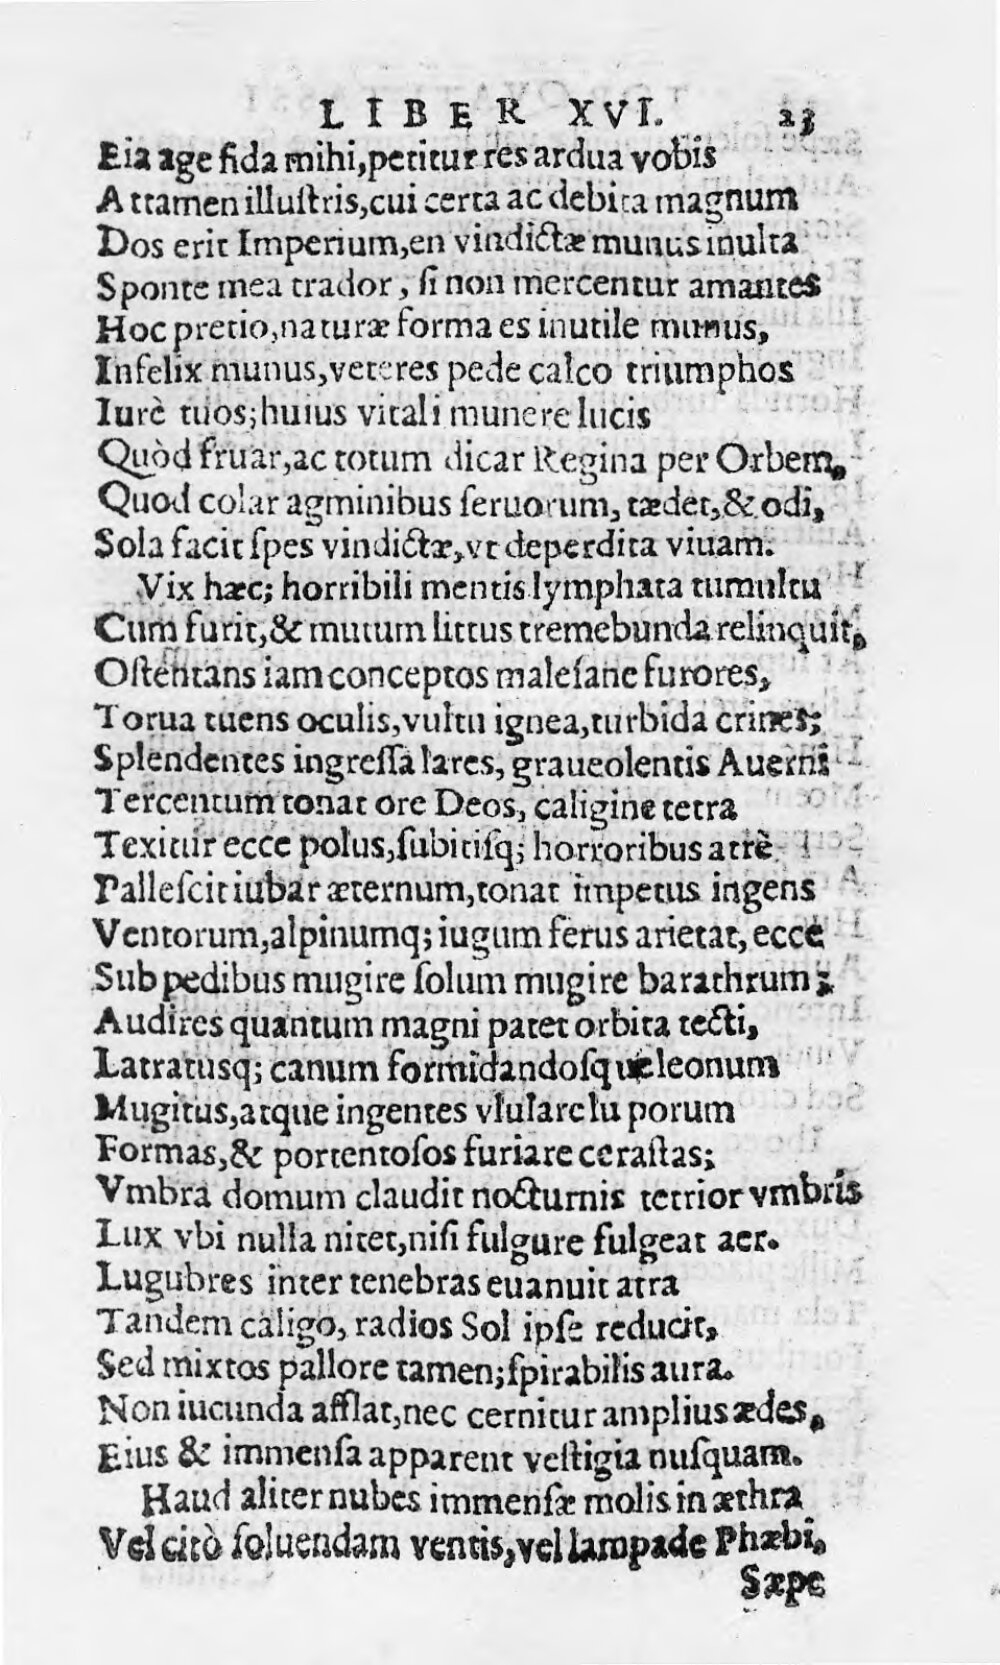 LIBER XVI. 23
Eia age fida mihi, petitur res ardua vobis
Attamen illuſtris, cui certa ac debita magnum
Dos erit Imperium, en vindictæ munus inulta
Sponte mea trador, ſi non mercentur amantes
Hoc pretio, naturæ forma es inutile munus,
Infelix munus, veteres pede calco triumphos
Iurè tuos; huius vitali munere lucis
Quòd fruar, ac totum dicar Regina per Orbem,
Quod colar agminibus ſeruorum, tædet, & odi,
Sola facit ſpes vindictæ, vt deperdita viuam.
Vix hæc; horribili mentis lymphata tumultu
Cum furit, & mutum littus tremebunda relinquit,
Oſtentans iam conceptos maleſane furores,
Torua tuens oculis, vultu ignea, turbida crines;
Splendentes ingreſſa lares, graueolentis Auerni
Tercentum tonat ore Deos, caligine tetra
Texitur ecce polus, ſubitiſq; horroribus atrè
Palleſcit iubar æternum, tonat impetus ingens
Ventorum, alpinumq; iugum ferus arietat, ecce
Sub pedibus mugire ſolum mugire barathrum;
Audires quantum magni patet orbita tecti,
Latratusq; canum formidandoſque leonum
Mugitus, atque ingentes vlulare luporum
Formas, & portentoſos furiare ceraſtas;
Vmbra domum claudit nocturnis tetrior vmbris
Lux vbi nulla nitet, niſi fulgure fulgeat aer.
Lugubres inter tenebras euanuit atra
Tandem caligo, radios Sol ipſe reducit,
Sed mixtos pallore tamen; ſpirabilis aura.
Non iucunda afflat, nec cernitur amplius ædes,
Eius & immenſa apparent veſtigia nuſquam.
Haud aliter nubes immenſæ molis in æthra
Vel citò ſoluendam ventis, vel lampade Phæbi,
Sæpe